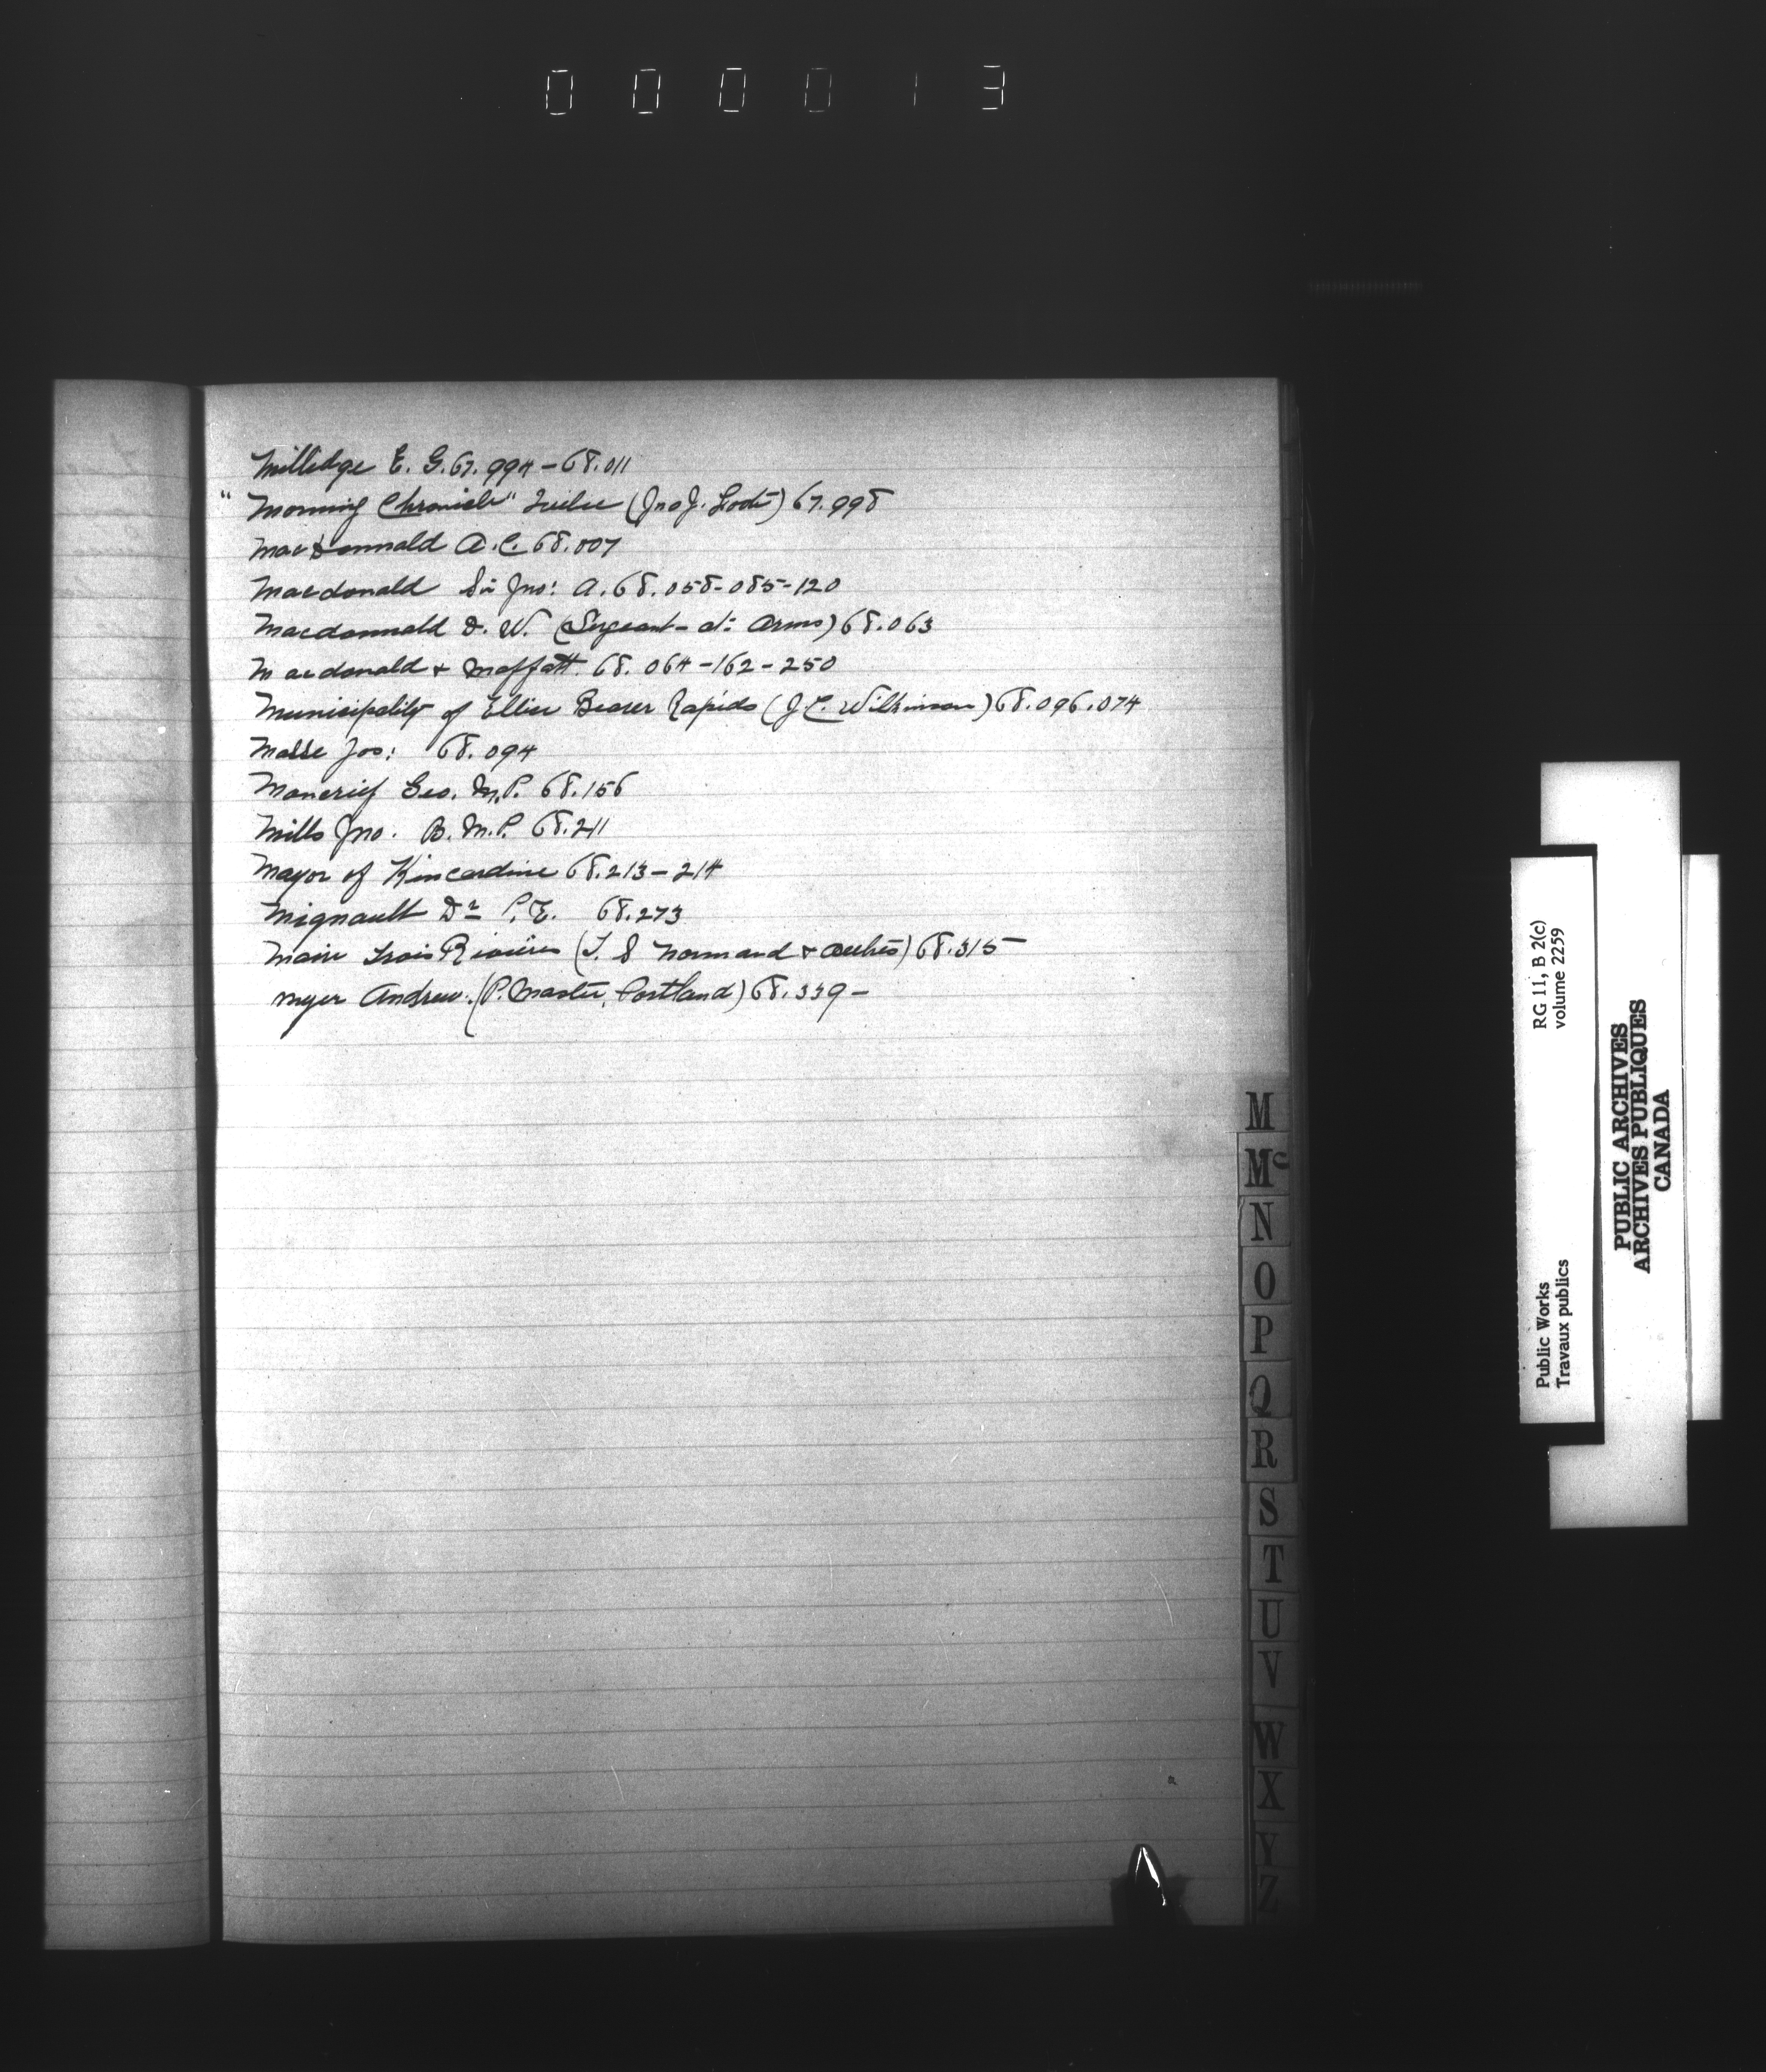 000013
Milledge E. G. 67.994-68.011
"Morning Chronicle" Quebec (Jno J. Foote) 67.998
MacDonnald A.C. 68.007
Macdonald Sir Jno: A. 68.058-085-120
Macdonnald D. W. (Sergeant-at-Arms) 68.063
Macdonald & Moffatt. 68.064-162-250
Municipality of Ellice Beaver Rapids (J.C. Wilkinson) 68.096.074
Masse Jos: 68.094
Moncrief Geo. M.P. 68.156
Mills Jno. B. M.P. 68.211
Mayor of Kincardine 68.213-214
Mignault Dr P. E. 68.273
Maire Trois Rivières (T. E Normand & autres) 68.315-
Myer Andrew. (P. Master, Portland) 68.339-
M
Mc
N
O
P
Q
R
S
T
U
V
W
X
Y
Z
RG 11, B 2(c)
volume 2259
Public Works
Travaux publics
PUBLIC ARCHIVES
ARCHIVES PUBLIQUES
CANADA